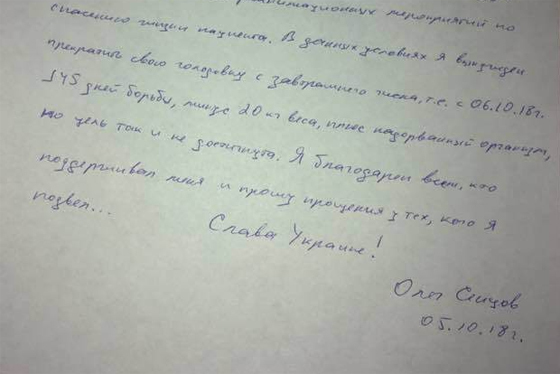 реанимационных мероприятий по
спасению жизни пациента. В данных условиях я вынужден
прекратить свою голодовку с завтрашнего числа, т.е. с 06.10.18г.
145 дней борьбы, минус 20 кг веса, плюс надорванный организм,
но цель так и не достигнута. Я благодарен всем, кто
поддерживал меня и прошу прощения у тех, кого я
подвел...
Слава Украине!
Олег Сенцов
05.10.18г.